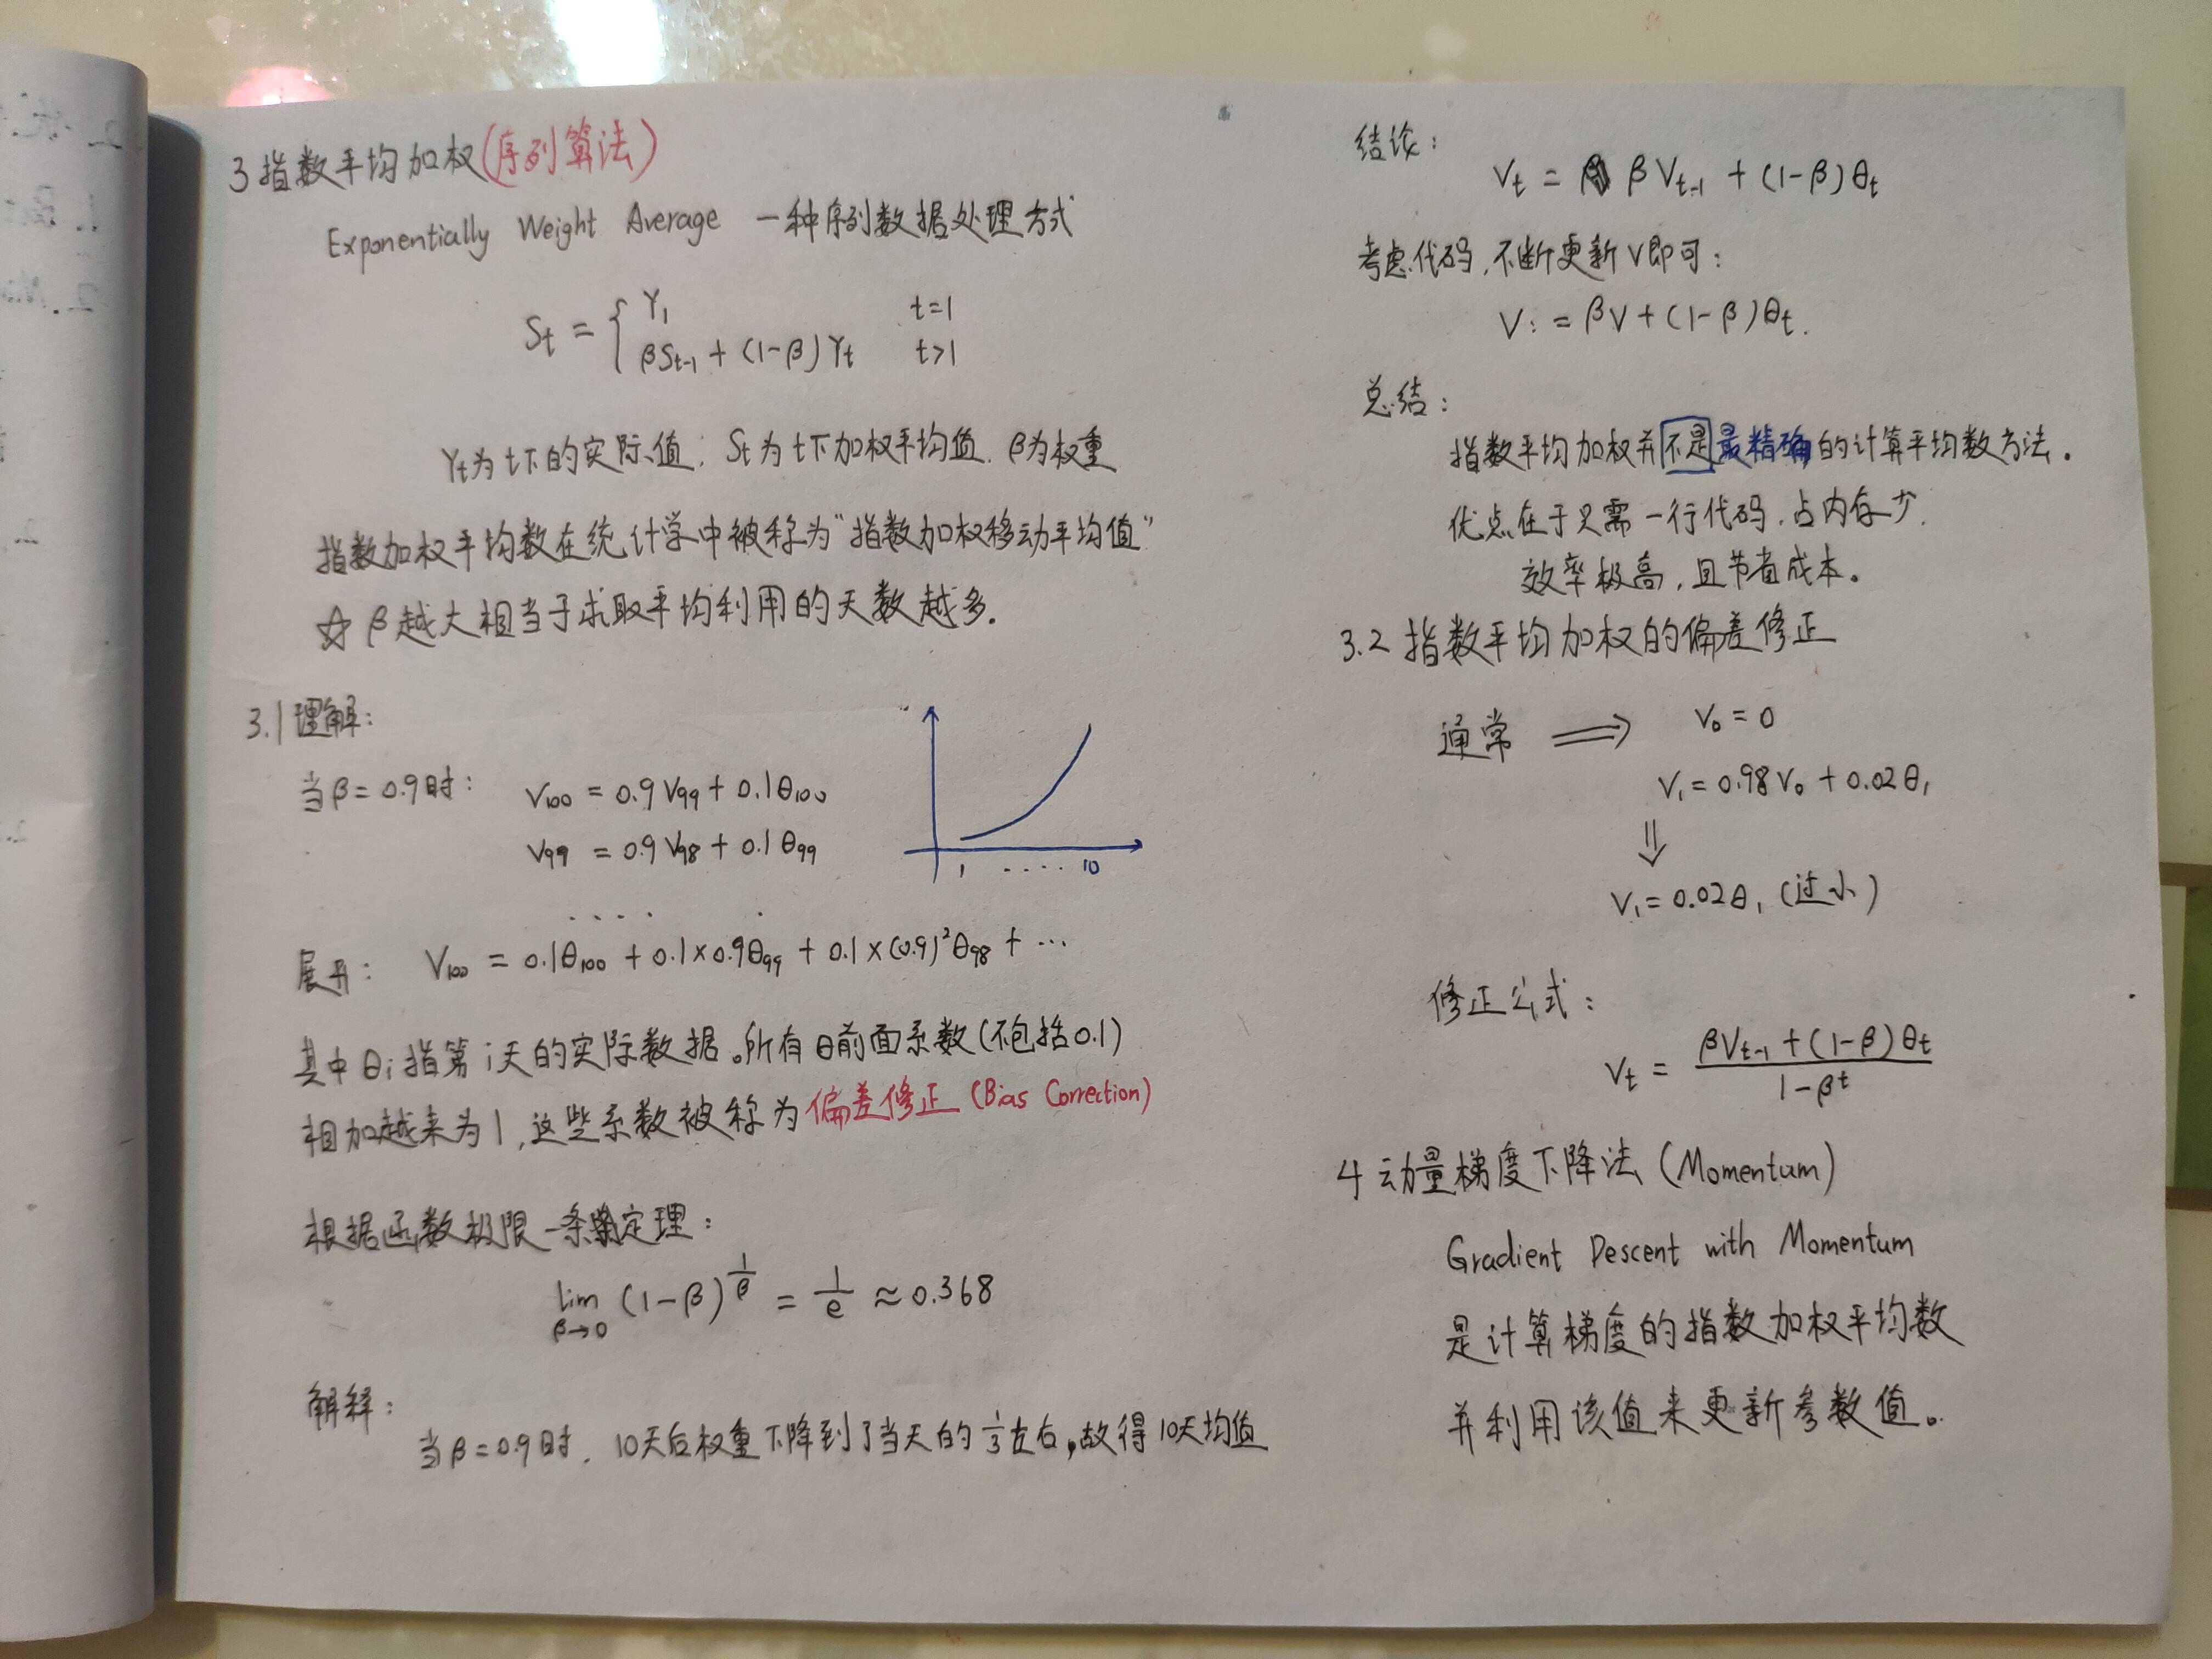 3 指数平均加权(序列算法)
Exponentially Weight Average 一种序列数据处理方式
St = { Y1 t=1
βSt-1 + (1-β)Yt t>1
Yt为t下的实际值; St为t下加权平均值. β为权重
指数加权平均数在统计学中被称为“指数加权移动平均值”
☆ β越大相当于求取平均利用的天数越多.
3.1 理解:
当β=0.9时: V100 = 0.9V99 + 0.1θ100
V99 = 0.9V98 + 0.1θ99
....
1 .... 10
展开: V100 = 0.1θ100 + 0.1×0.9θ99 + 0.1×(0.9)²θ98 + ...
其中θi指第i天的实际数据。所有θ前面系数(不包括0.1)
相加越来为1,这些系数被称为偏差修正(Bias Correction)
根据函数极限一条定理:
lim β→0 (1-β)^(1/β) = 1/e ≈ 0.368
解释:
当β=0.9时. 10天后权重下降到了当天的1/3左右,故得10天均值
结论:
Vt = βVt-1 + (1-β)θt
考虑代码,不断更新V即可:
V := βV + (1-β)θt.
总结:
指数平均加权并不是最精确的计算平均数方法.
优点在于只需一行代码.占内存少.
效率极高,且节省成本。
3.2 指数平均加权的偏差修正
通常 ⟹ V0 = 0
V1 = 0.98V0 + 0.02θ1
⇓
V1 = 0.02θ1 (过小)
修正公式:
Vt = (βVt-1 + (1-β)θt) / (1-β^t)
4 动量梯度下降法(Momentum)
Gradient Descent with Momentum
是计算梯度的指数加权平均数
并利用该值来更新参数值。